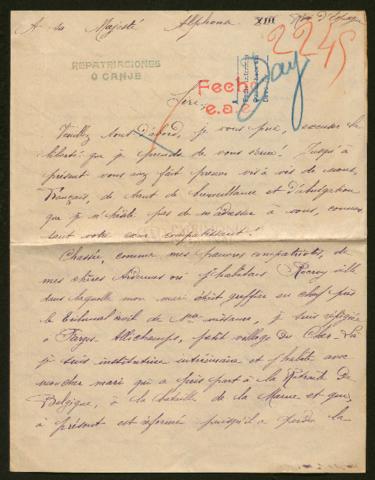 A sa Majesté Alphonse XIII Roi d'Espagne
2245
REPATRIACIONES
O CANJE
Fecha
e.a.
Sire,
Veuillez tout d'abord, je vous prie, excuser la
liberté que je prends de vous écrire! Jusqu'à
présent vous avez fait preuve vis à vis de nous,
Français, de tant de bienveillance et d'abnégation
que je n'hésite pas de m'adresser à vous, connais-
sant votre cœur compatissant!
Chassée, comme mes pauvres compatriotes, de
mes chères Ardennes où j'habitais Rocroy ville
dans laquelle mon mari était greffier en chef près
le Tribunal civil de 1ère instance, je suis réfugiée
à Farges Allichamps, petit village du Cher. Là
je suis institutrice intérimaire et j'habite avec
mon cher mari qui a pris part à la Retraite de
Belgique, à la bataille de la Marne et qui,
à présent est réformé puisqu'il a perdu la